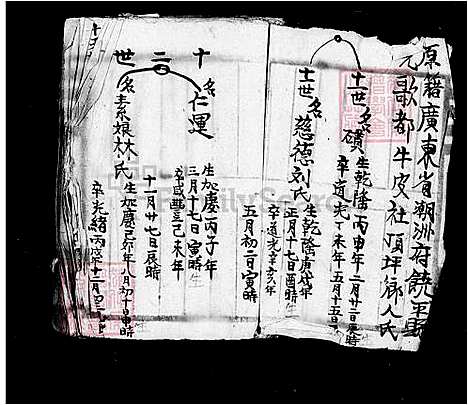 原籍廣東省潮州府饒平縣
元歌都牛皮社頂坪鄉人氏
十一世名礩生乾隆丙申年二月廿二日
卒道光丁未年五月十五日
十一世名慈德刘氏生乾隆庚戌年
正月十七日酉時
卒道光辛亥年
五月初二日寅時
十二世
名仁運
生加慶丙子年
三月十七日寅時
卒咸豐己未年
十一月廿七日辰時
名素娘林氏生加慶己卯年八月初十日寅時
卒光緒丙戌年十二月初二
FamilySearch